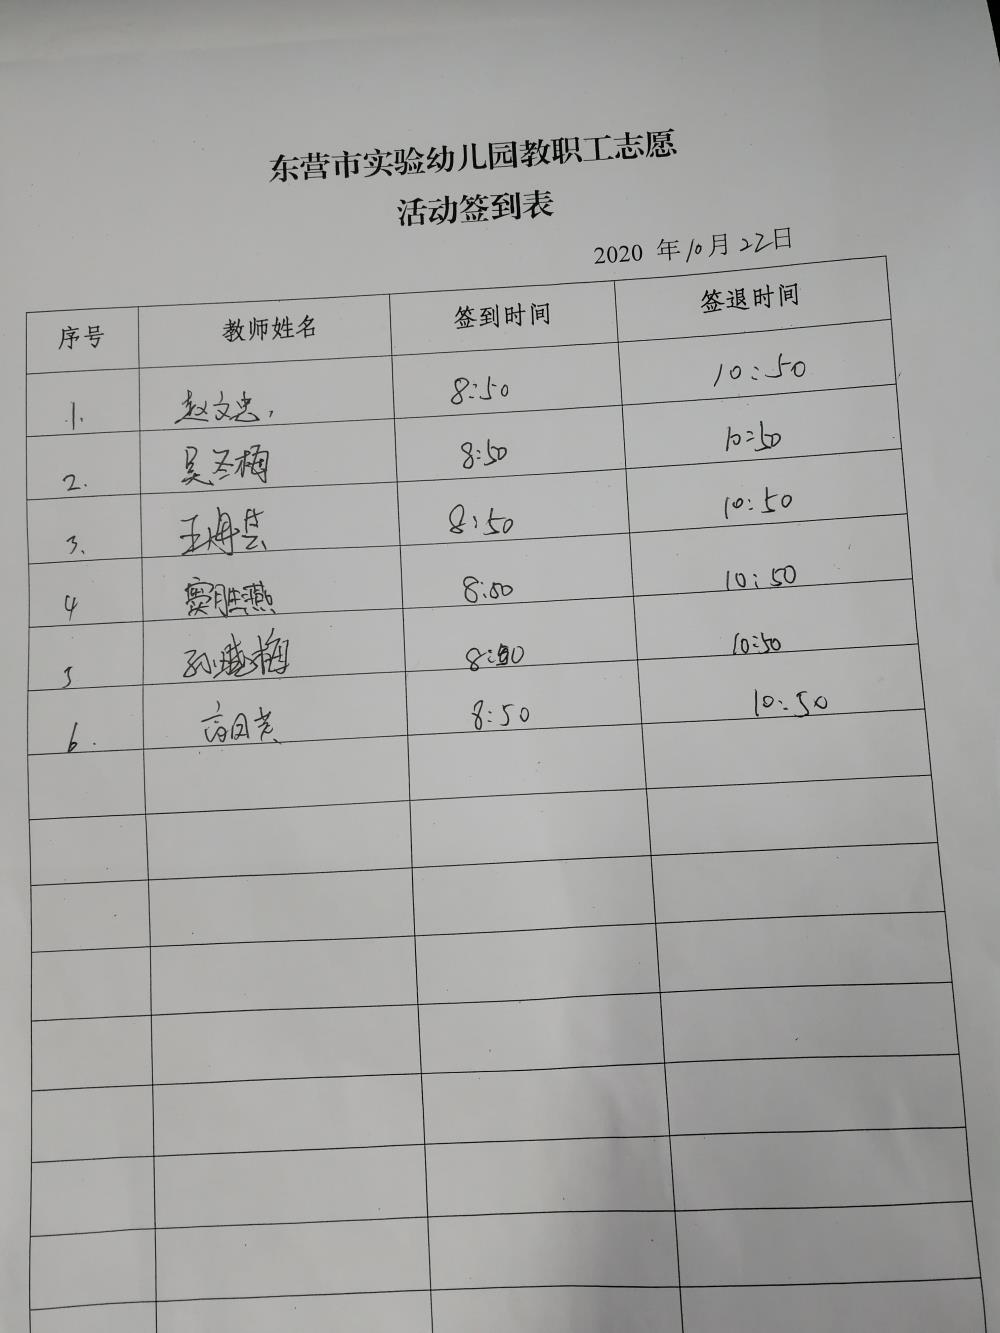 东营市实验幼儿园教职工志愿
活动签到表
2020 年10月22日
序号 教师姓名 签到时间 签退时间
1. 赵文忠, 8:50 10:50
2. 吴圣梅 8:50 10:50
3. 王海芸 8:50 10:50
4 窦胜燕 8:50 10:50
5 孙晓梅 8:50 10:50
6. 8:50 10:50